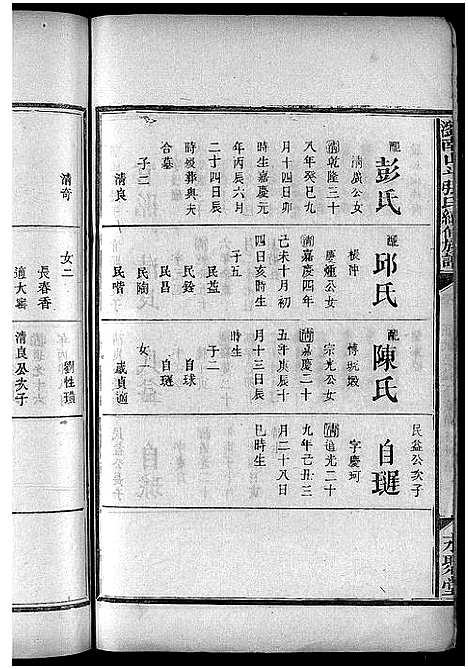 配
彭氏
清廣公女
清乾隆三十
八年癸巳九
月十四日卯
時生嘉慶元
年丙辰六月
二十四日辰
時歿葬與夫
合墓
子二
清良
清奇
配
邱氏
橫沖
慶煙公女
清嘉慶四年
己未十月初
四日亥時生
子五
民益
民銓
民昌
民陶
民喈
女二
長春香
適大窰
配
陳氏
傅坑墩
宗光公女
清嘉慶二十
五年庚辰十
月十三日辰
時生
子二
自球
自璭
女一
歲貞適
劉性璟
清良公次子
民益公次子
自璭
字慶珂
清道光二十
九年己丑三
月二十八日
巳時生